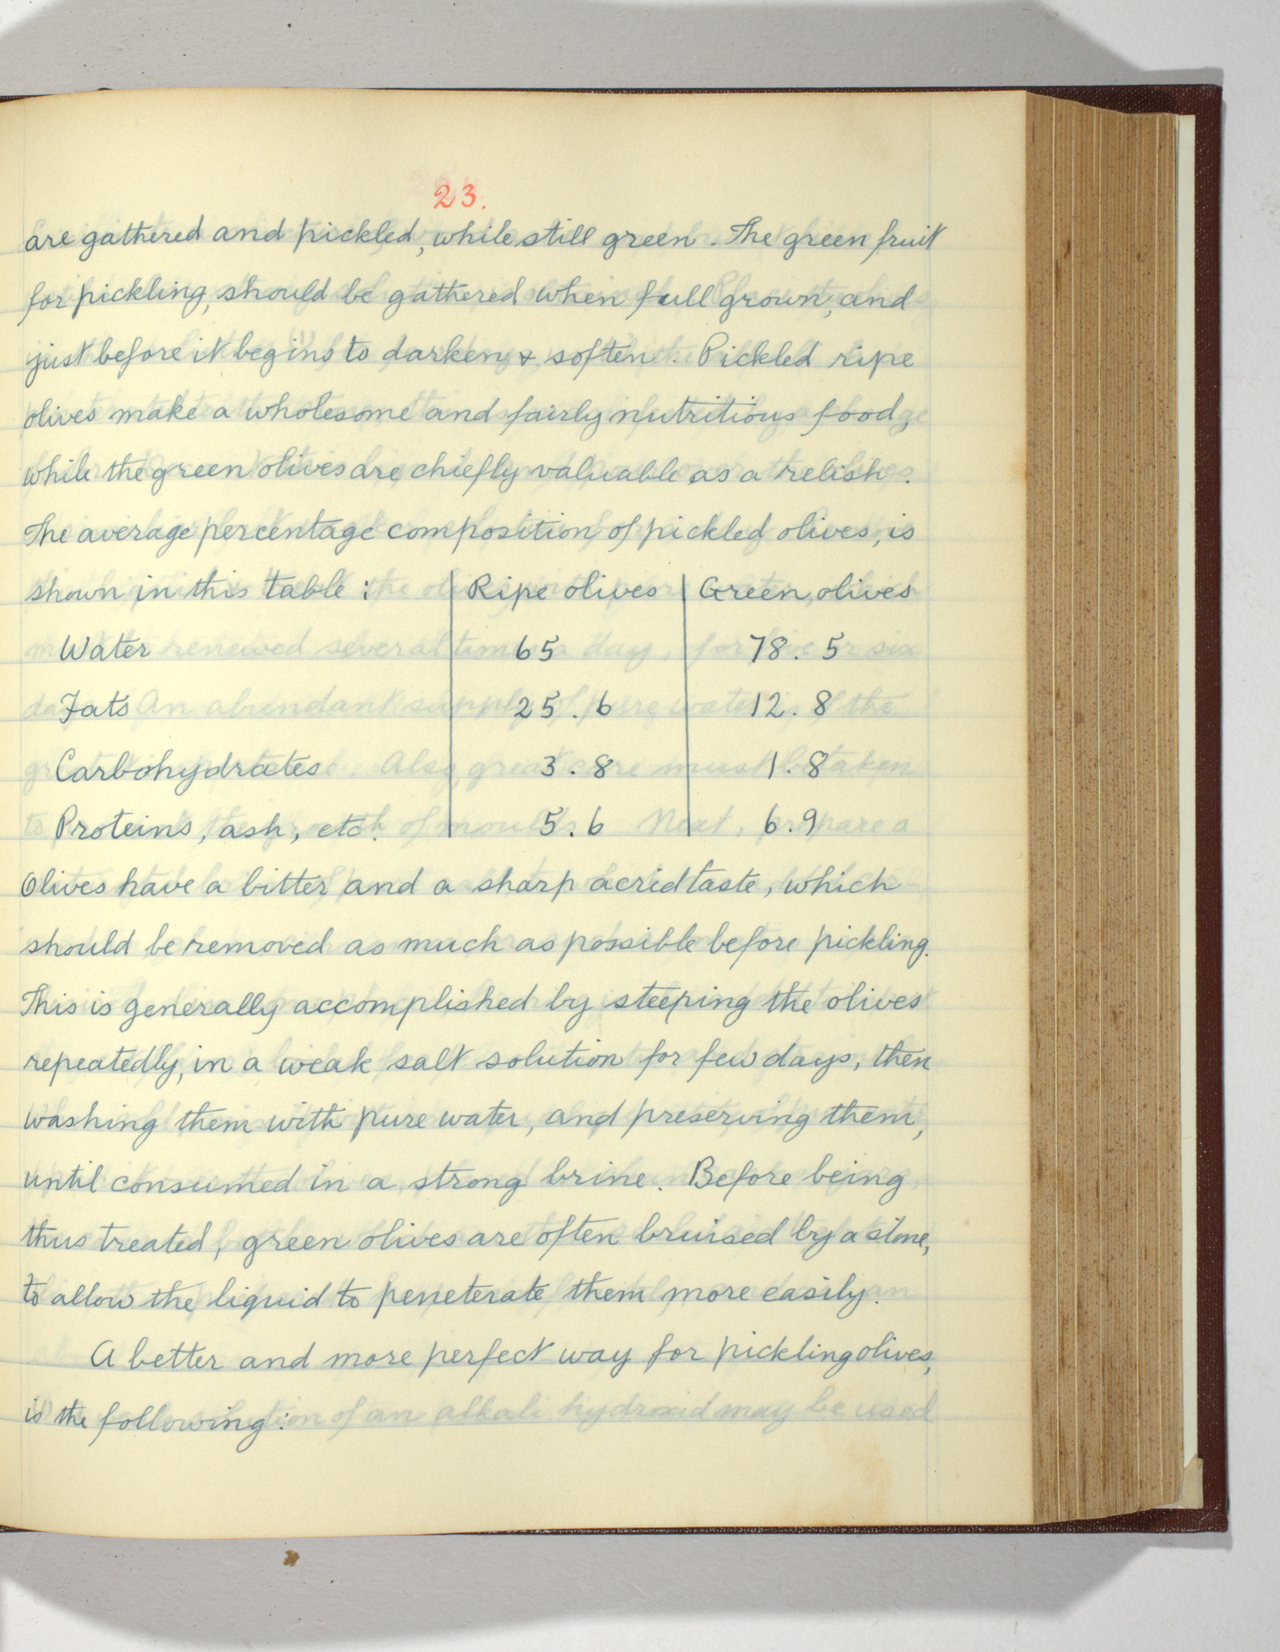 23.
are gathered and pickled, while still green. The green fruit
for pickling, should be gathered when full grown, and
just before it begins to darken, & soften. Pickled ripe
olives make a wholesome and fairly nutritious food,
while the green olives are chiefly valuable as a relish.
The average percentage composition of pickled olives, is
shown in this table : Ripe olives Green olives
Water 65 78.5
Fats 25.6 12.8
Carbohydrates 3.8 1.8
Proteins, ash, etc. 5.6 6.9
Olives have a bitter and a sharp acrid taste, which
should be removed as much as possible before pickling.
This is generally accomplished by steeping the olives
repeatedly, in a weak salt solution for few days, then
washing them with pure water, and preserving them,
until consumed in a strong brine. Before being
thus treated, green olives are often bruised by a stone,
to allow the liquid to peneterate them more easily.
A better and more perfect way for pickling olives,
is the following: